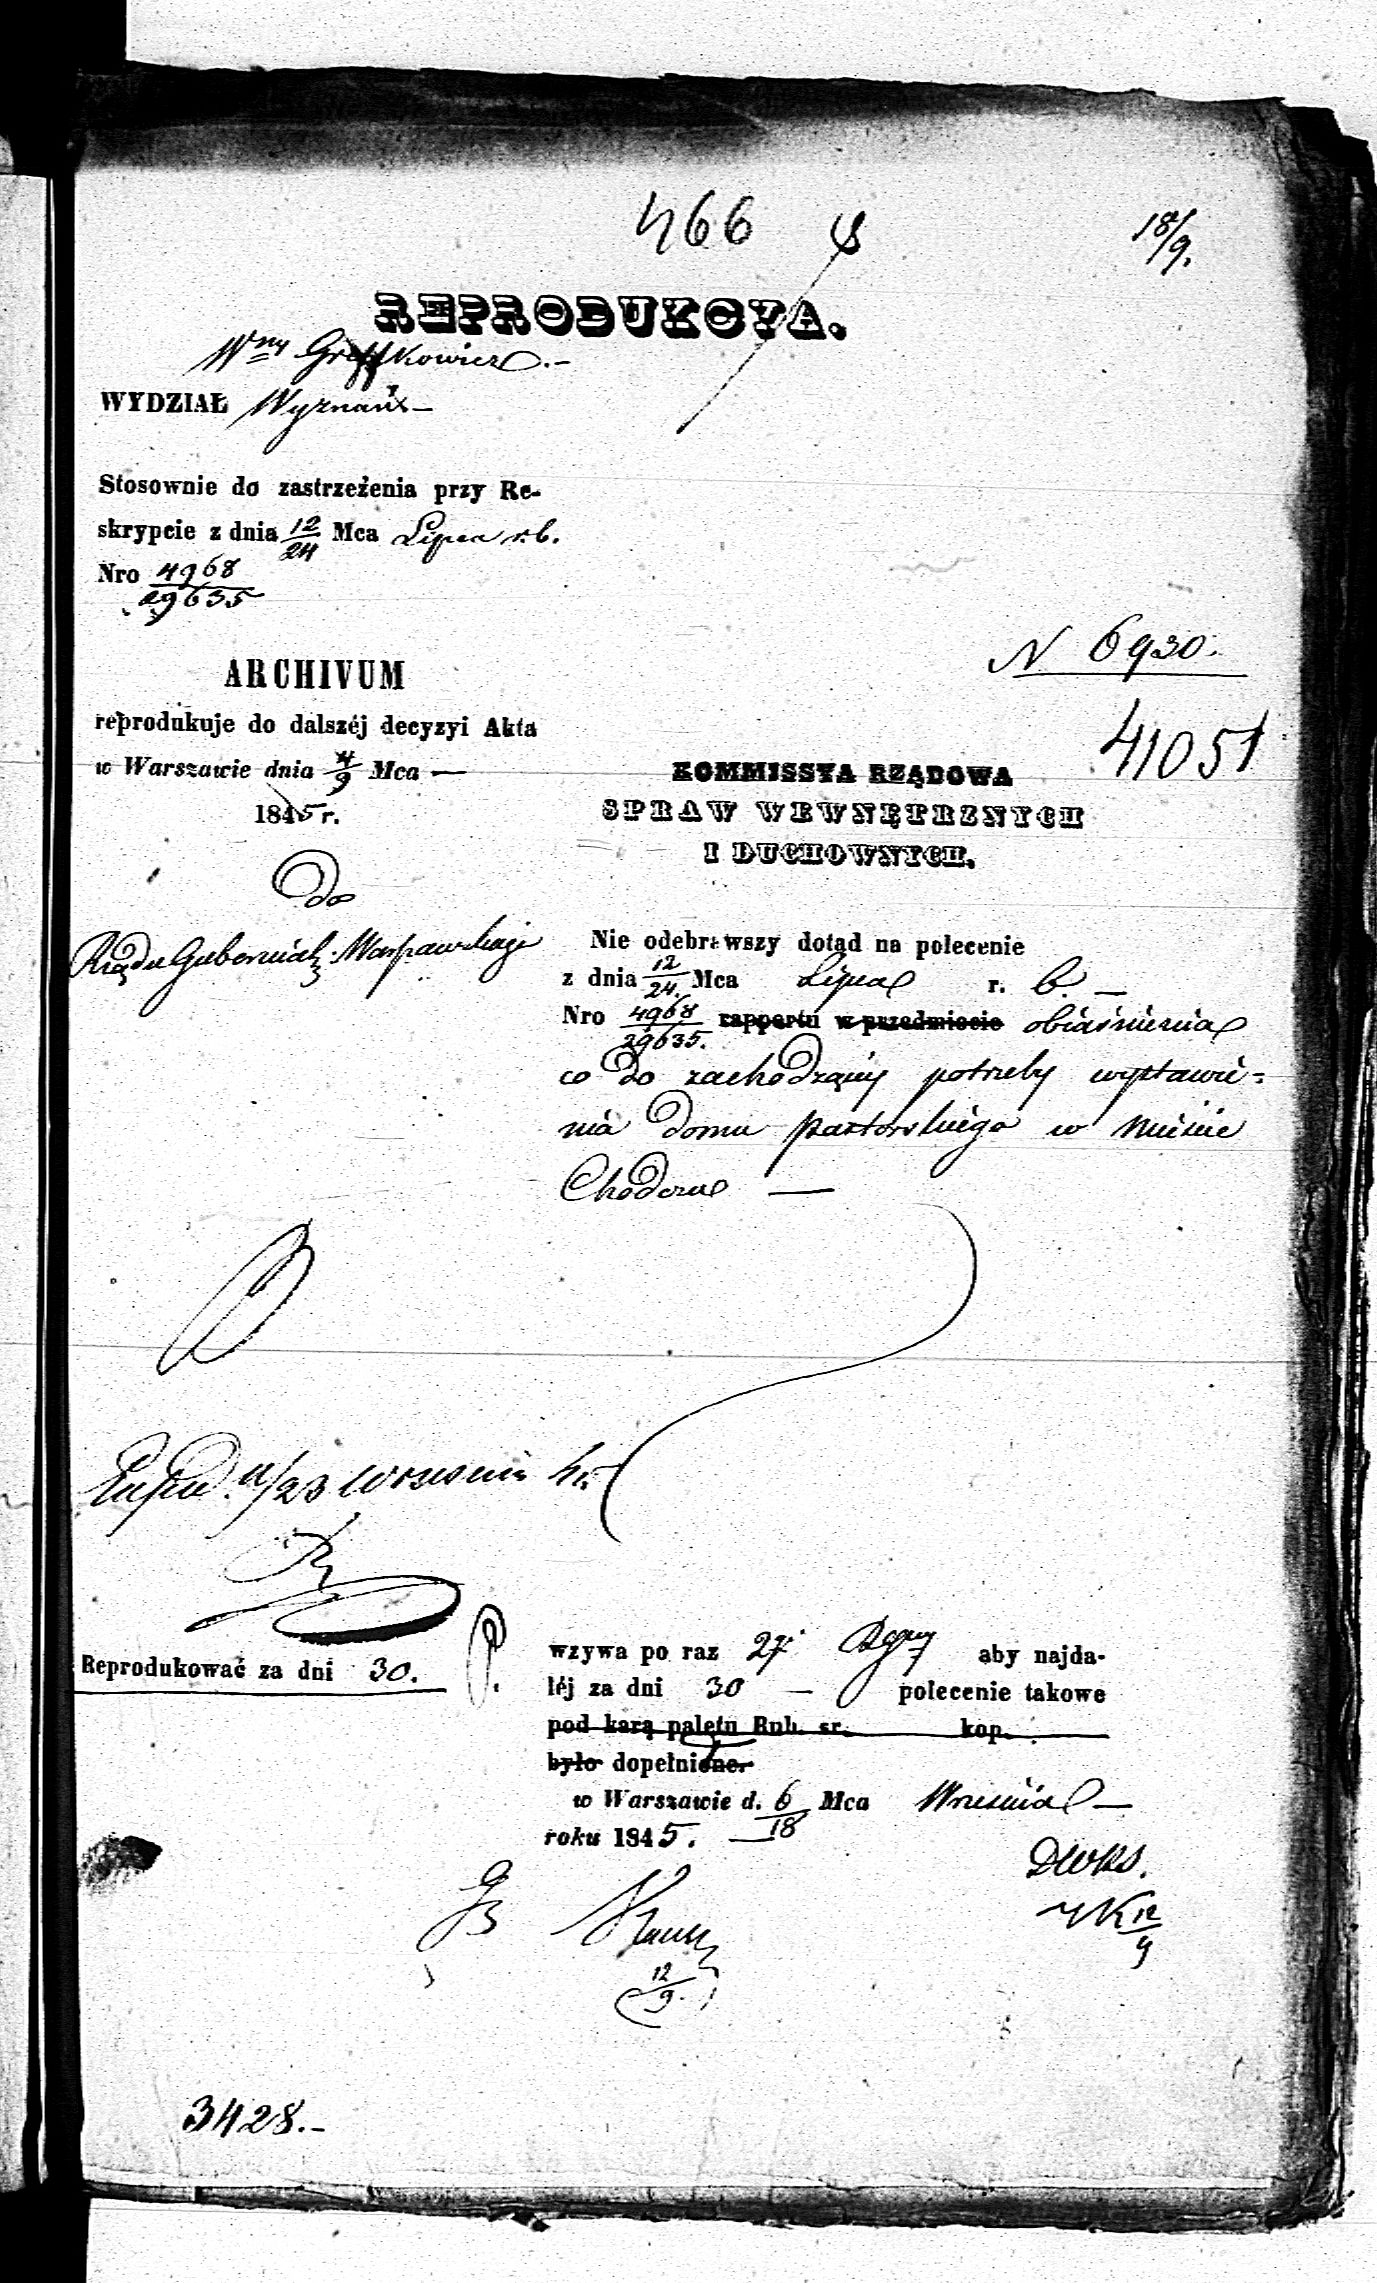 466
18/9.
REPRODUKCYA.
Wny Greffkowicz.-
WYDZIAŁ Wyznań -
Stosownie do zastrzeżenia przy Re-
skrypcie z dnia 12/24 Mca Lipca r.b.
Nro 4968/29635
N 6930.
41051
ARCHIVUM
reprodukuje do dalszéj decyzyi Akta
w Warszawie dnia 4/9 Mca —
1845 r.
Do
Rządu Gubernial: Warszawskiego
KOMMISSYA RZĄDOWA
SPRAW WEWNĘTRZNYCH
I DUCHOWNYCH.
Nie odebrawszy dotąd na polecenie
z dnia 12/24. Mca Lipca r. b. —
Nro 4968/29635. rapportu w przedmiocie obiaśnienia
co do zachodzącej potrzeby wystawie=
nia domu pastorskiego w mieście
Chodczu —
11/23 Wrzesnia
Reprodukować za dni 30.
wzywa po raz 2gi aby najda-
léj za dni 30 — polecenie takowe
pod karą paletu Rub. sr. kop.
było dopełnione.
w Warszawie d. 6/18 Mca Wrzesnia —
roku 1845. —
DWRS.
12/9
12/9.
3428.-